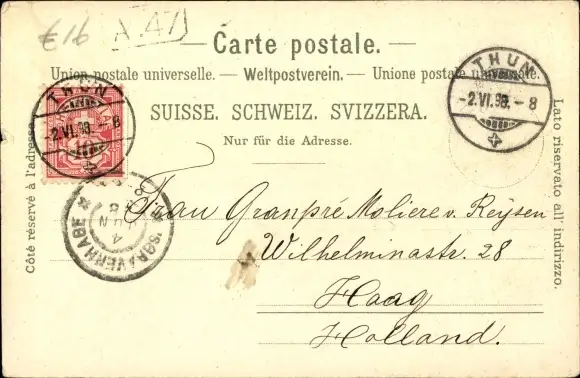 €16 A 47
— Carte postale. —
Union postale universelle. — Weltpostverein. — Unione postale universale.
SUISSE. SCHWEIZ. SVIZZERA.
Nur für die Adresse.
Côté réservé à l'adresse.
Lato riservato all' indirizzo.
THUN
-2.VI.98.-8
THUN
-2.VI.98.-8
10
'SGRAVENHAGE
4 JUN
98
Frau Granpré Moliere v. Reysen
Wilhelminastr. 28
Haag
Holland.